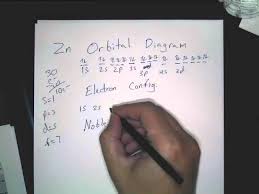 Zn Orbital Diagram
1s 2s 2p 3s 3p 4s 3d
30
s=1
p=3
d=5
f=7
Electron Config.
1s 2s
Noble